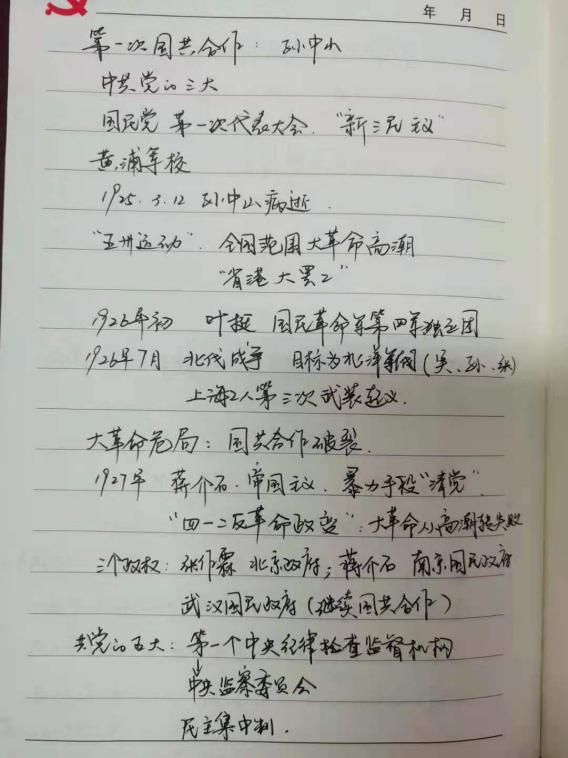 年 月 日
第一次国共合作：孙中山
中共党的三大
国民党 第一次代表大会．“新三民主义”
黄浦军校
1925.3.12 孙中山病逝．
“五卅运动”．全国范围大革命高潮
“省港大罢工”
1926年初 叶挺 国民革命军第四军独立团
1926年7月 北伐战争 目标为北洋军阀(吴、孙、张)
上海工人第三次武装起义．
大革命危局：国共合作破裂．
1927年 蒋介石．帝国主义．暴力手段“清党”．
“四一二反革命政变”：大革命从高潮转失败
三个政权：张作霖 北京政府；蒋介石 南京国民政府
武汉国民政府(继续国共合作)
共党的五大：第一个中央纪律检查监督机构
中央监察委员会
民主集中制．